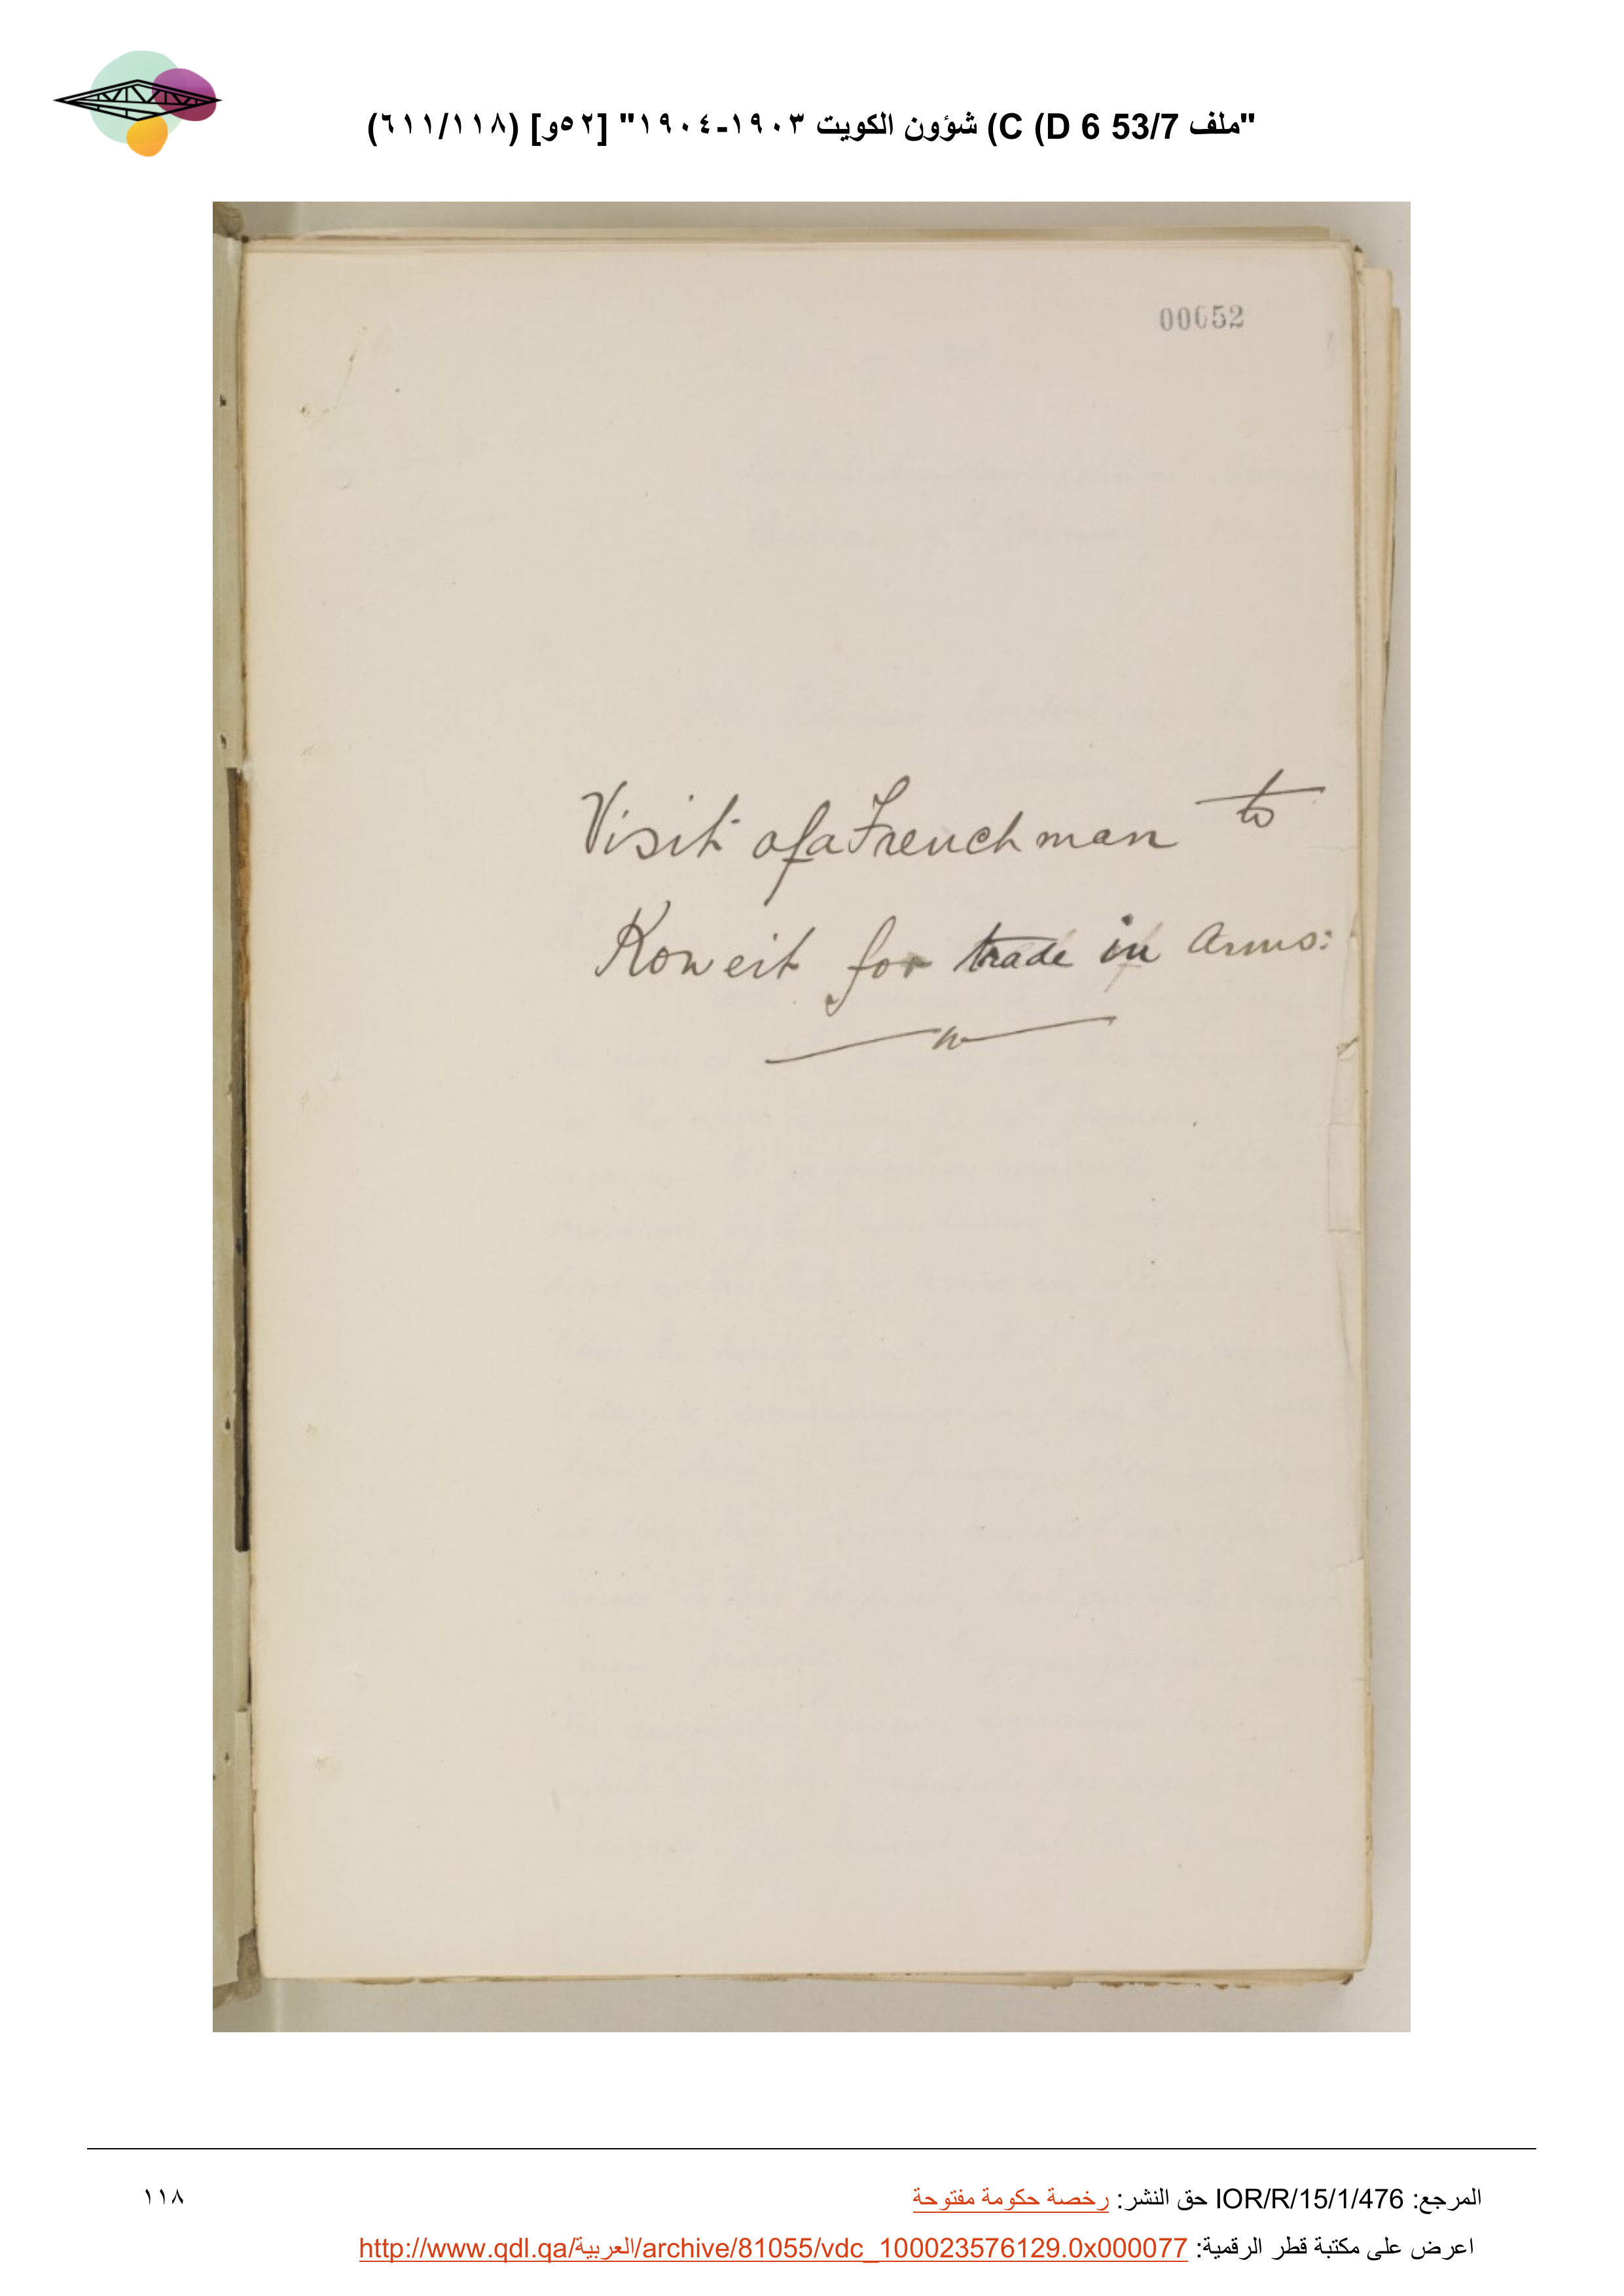 "ملف 53/7 C (D 6) شؤون الكويت ١٩٠٣-١٩٠٤" [٥٢و] (٦١١/١١٨)
00052
Visit of a Frenchman to
Koweit for trade in Arms:
المرجع: IOR/R/15/1/476 حق النشر: رخصة حكومة مفتوحة
١١٨
اعرض على مكتبة قطر الرقمية: http://www.qdl.qa/العربية/archive/81055/vdc_100023576129.0x000077